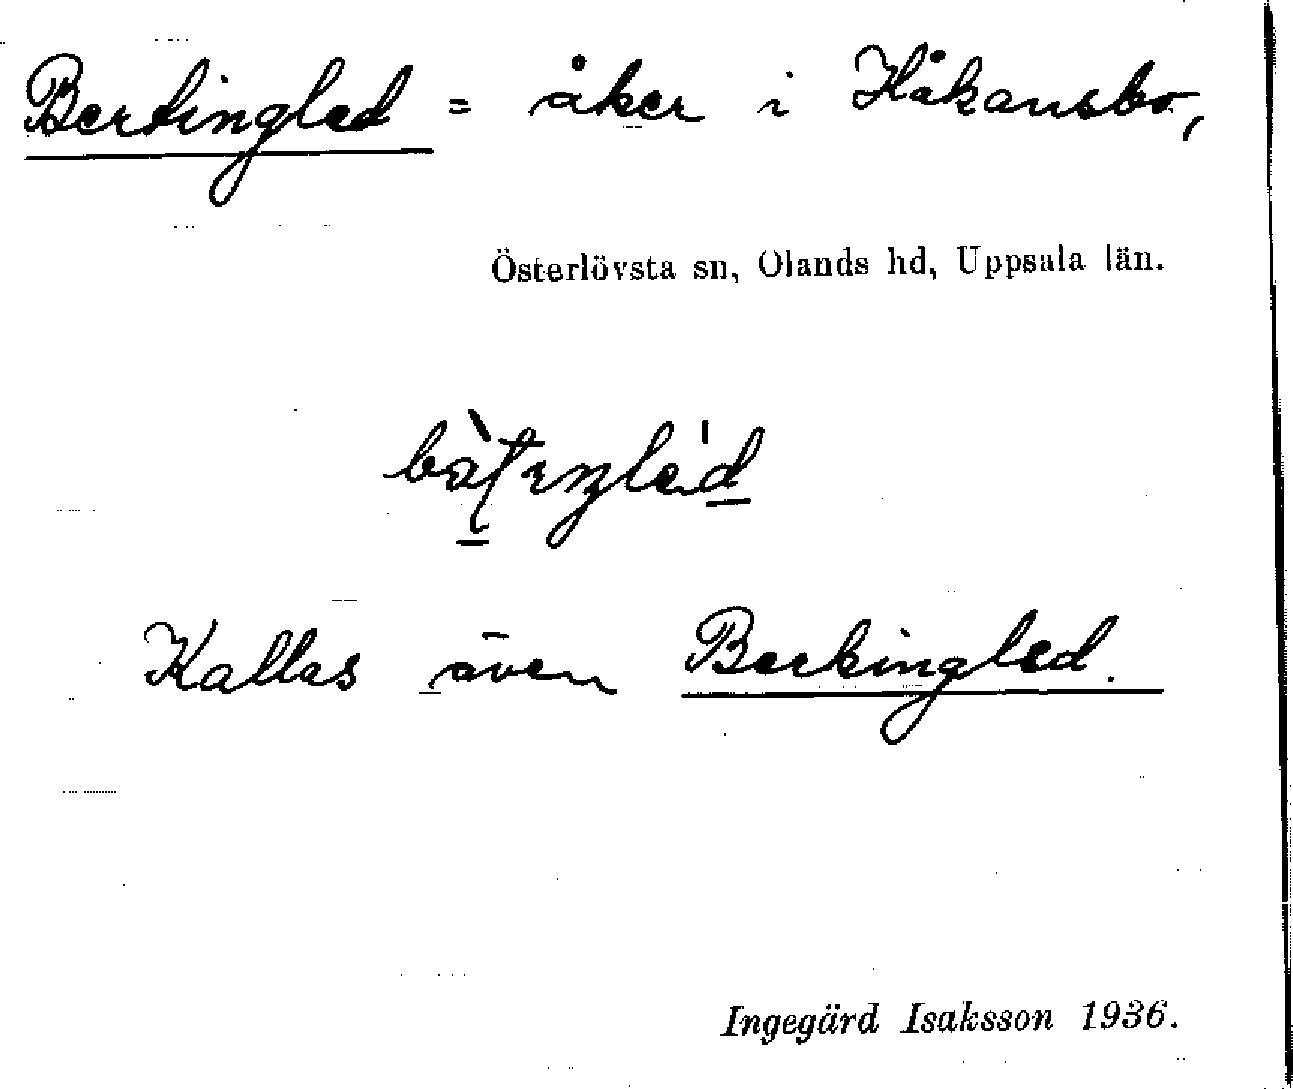 Bertingled = åker i Håkansbo,
Österlövsta sn, Olands hd, Uppsala län.
Kallas även Beckingled.
Ingegärd Isaksson 1936.